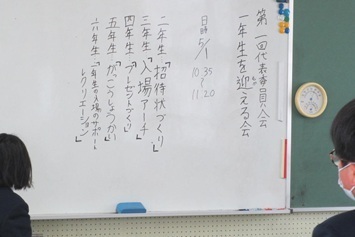 第一回代表委員会
一年生を迎える会
日時 5/1
10:35
〜
11:20
二年生「招待状づくり」
三年生「入場アーチ」
四年生「プレゼントづくり」
五年生「がっこうしょうかい」
六年生「1年生入場のサポート
レクリエーション」